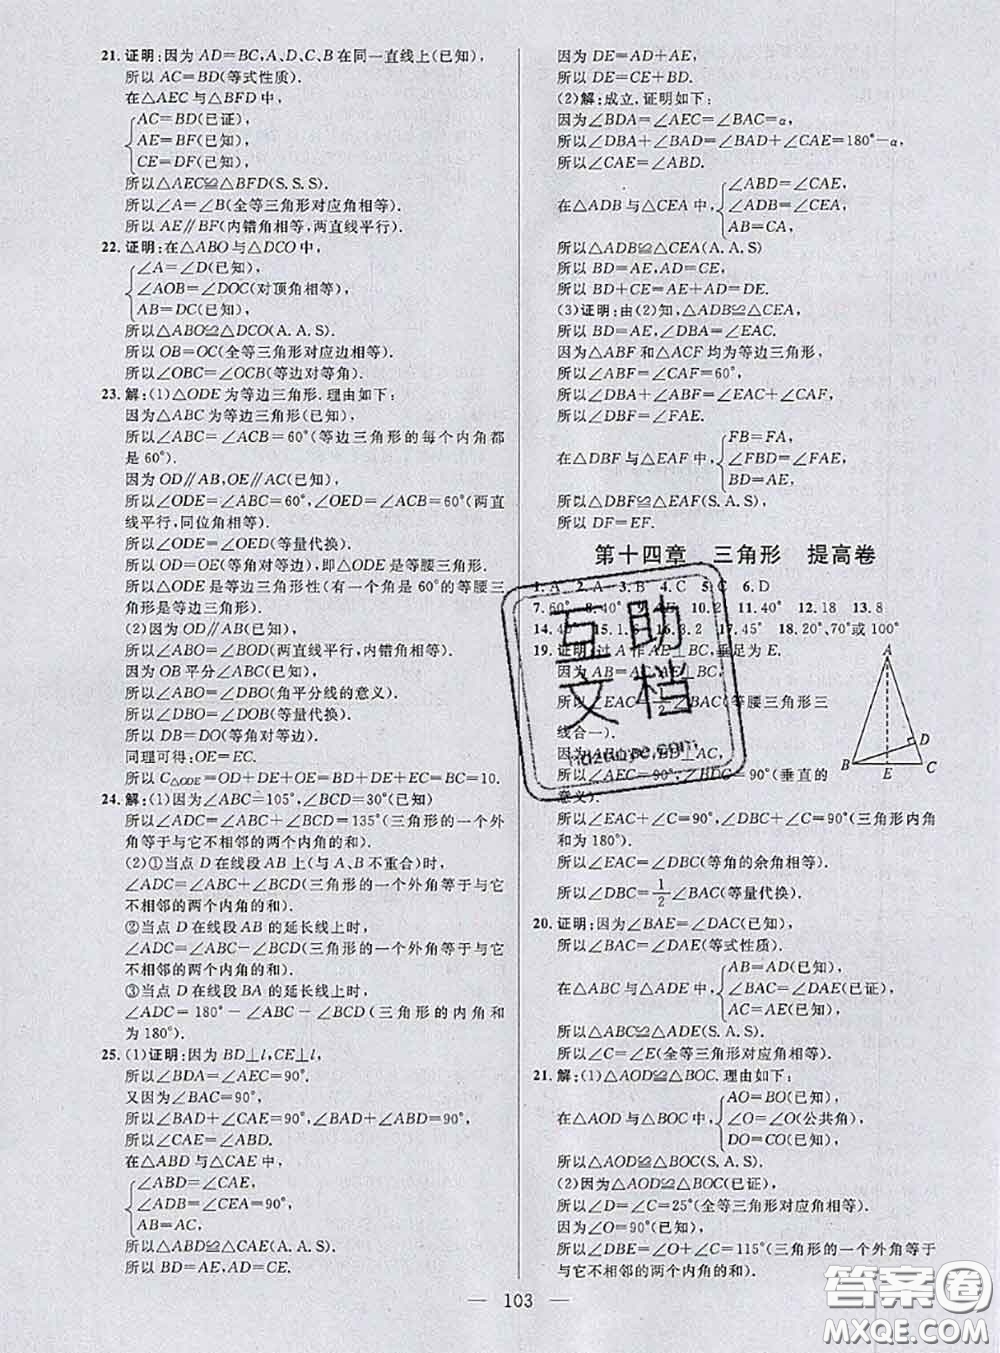 21. 证明:因为 AD=BC,A、D、C、B 在同一直线上(已知),
所以 AC=BD(等式性质).
在△AEC 与△BFD 中,
AC=BD(已证),
AE=BF(已知),
CE=DF(已知),
所以△AEC≌△BFD(S.S.S).
所以∠A=∠B(全等三角形对应角相等).
所以 AE∥BF(内错角相等,两直线平行).
22. 证明:在△ABO 与△DCO 中,
∠A=∠D(已知),
∠AOB=∠DOC(对顶角相等),
AB=DC(已知),
所以△ABO≌△DCO(A.A.S).
所以 OB=OC(全等三角形对应边相等).
所以∠OBC=∠OCB(等边对等角).
23. 解:(1)△ODE 为等边三角形.理由如下:
因为△ABC 为等边三角形(已知),
所以∠ABC=∠ACB=60°(等边三角形的每个内角都
是 60°).
因为 OD∥AB,OE∥AC(已知),
所以∠ODE=∠ABC=60°,∠OED=∠ACB=60°(两直
线平行,同位角相等).
所以∠ODE=∠OED(等量代换).
所以 OD=OE(等角对等边),即△ODE 为等腰三角形.
所以△ODE 是等边三角形性(有一个角是 60°的等腰三
角形是等边三角形).
(2)因为 OD∥AB(已知),
所以∠ABO=∠BOD(两直线平行,内错角相等).
因为 OB 平分∠ABC(已知),
所以∠ABO=∠DBO(角平分线的意义).
所以∠DBO=∠DOB(等量代换).
所以 DB=DO(等角对等边).
同理可得:OE=EC.
所以 C△ODE=OD+DE+OE=BD+DE+EC=BC=10.
24. 解:(1)因为∠ABC=105°,∠BCD=30°(已知)
所以∠ADC=∠ABC+∠BCD=135°(三角形的一个外
角等于与它不相邻的两个内角的和).
(2)①当点 D 在线段 AB 上(与 A、B 不重合)时,
∠ADC=∠ABC+∠BCD(三角形的一个外角等于与它
不相邻的两个内角的和).
②当点 D 在线段 AB 的延长线上时,
∠ADC=∠ABC-∠BCD(三角形的一个外角等于与它
不相邻的两个内角的和).
③当点 D 在线段 BA 的延长线上时,
∠ADC=180°-∠ABC-∠BCD(三角形的内角和
为 180°).
25. (1)证明:因为 BD⊥l,CE⊥l,
所以∠BDA=∠AEC=90°.
又因为∠BAC=90°,
所以∠BAD+∠CAE=90°,∠BAD+∠ABD=90°.
所以∠CAE=∠ABD.
在△ABD 与△CAE 中,
∠ABD=∠CAE,
∠ADB=∠CEA=90°,
AB=AC,
所以△ABD≌△CAE(A.A.S).
所以 BD=AE,AD=CE.
因为 DE=AD+AE,
所以 DE=CE+BD.
(2)解:成立,证明如下:
因为∠BDA=∠AEC=∠BAC=α,
所以∠DBA+∠BAD=∠BAD+∠CAE=180°-α,
所以∠CAE=∠ABD.
在△ADB 与△CEA 中,
∠ABD=∠CAE,
∠ADB=∠CEA,
AB=CA,
所以△ADB≌△CEA(A.A.S)
所以 BD=AE,AD=CE,
所以 BD+CE=AE+AD=DE.
(3)证明:由(2)知,△ADB≌△CEA,
所以 BD=AE,∠DBA=∠EAC.
因为△ABF 和△ACF 均为等边三角形,
所以∠ABF=∠CAF=60°,
所以∠DBA+∠ABF=∠EAC+∠CAF.
所以∠DBF=∠FAE.
在△DBF 与△EAF 中,
FB=FA,
∠FBD=∠FAE,
BD=AE,
所以△DBF≌△EAF(S.A.S).
所以 DF=EF.
第十四章 三角形 提高卷
1. A 2. A 3. B 4. C 5. C 6. D
7. 60° 8. 40° 10. 2 11. 40° 12. 18 13. 8
17. 45° 18. 20°、70°或 100°
19. 证明:过 A 作 AE⊥BC,垂足为 E.
因为 AB= BC,
所以∠EAC= (等腰三角形三
线合一).
因为 BD⊥AC,
所以∠AEC=90°,∠BDC=90°(垂直的
意义).
所以∠EAC+∠C=90°,∠DBC+∠C=90°(三角形内角
和为 180°).
所以∠EAC=∠DBC(等角的余角相等).
所以∠DBC=1/2∠BAC(等量代换).
A
D
B
E
C
20. 证明:因为∠BAE=∠DAC(已知),
所以∠BAC=∠DAE(等式性质).
在△ABC 与△ADE 中,
AB=AD(已知),
∠BAC=∠DAE(已证),
AC=AE(已知),
所以△ABC≌△ADE(S.A.S).
所以∠C=∠E(全等三角形对应角相等).
21. 解:(1)△AOD≌△BOC.理由如下:
在△AOD 与△BOC 中,
AO=BO(已知),
∠O=∠O(公共角),
DO=CO(已知),
所以△AOD≌△BOC(S.A.S).
(2)因为△AOD≌△BOC(已证),
所以∠D=∠C=25°(全等三角形对应角相等).
因为∠O=90°(已知),
所以∠DBE=∠O+∠C=115°(三角形的一个外角等于
与它不相邻的两个内角的和).
互助
文档
103
答案圈
MXQE.COM